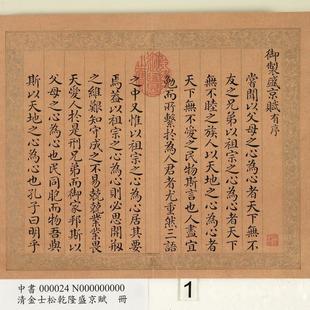 御製盛京賦有序
嘗聞以父母之心為心者天下無不
友之兄弟以祖宗之心為心者天下
無不睦之族人以天地之心為心者
天下無不愛之民物斯言也人盡宜
勉而所繫於為人君者尤重然三語
之中又惟以祖宗之心為心居其要
焉蓋以祖宗之心為心則必思開刱
之維艱知守成之不易兢兢業業畏
天愛人於是刑兄弟而御家邦斯以
父母之心為心也民同胞而物吾與
斯以天地之心為心也孔子曰明乎
中書 000024 N000000000
清金士松乾隆盛京賦 冊
1